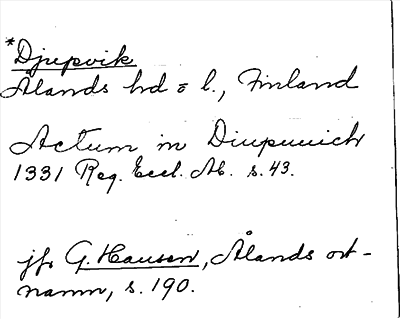 *Djupvik
Ålands hd o l., Finland
Actum in Diupuuich
1331 Reg. Eccl. Ab. s. 43.
jfr G. Hausen, Ålands ort-
namn, s. 190.